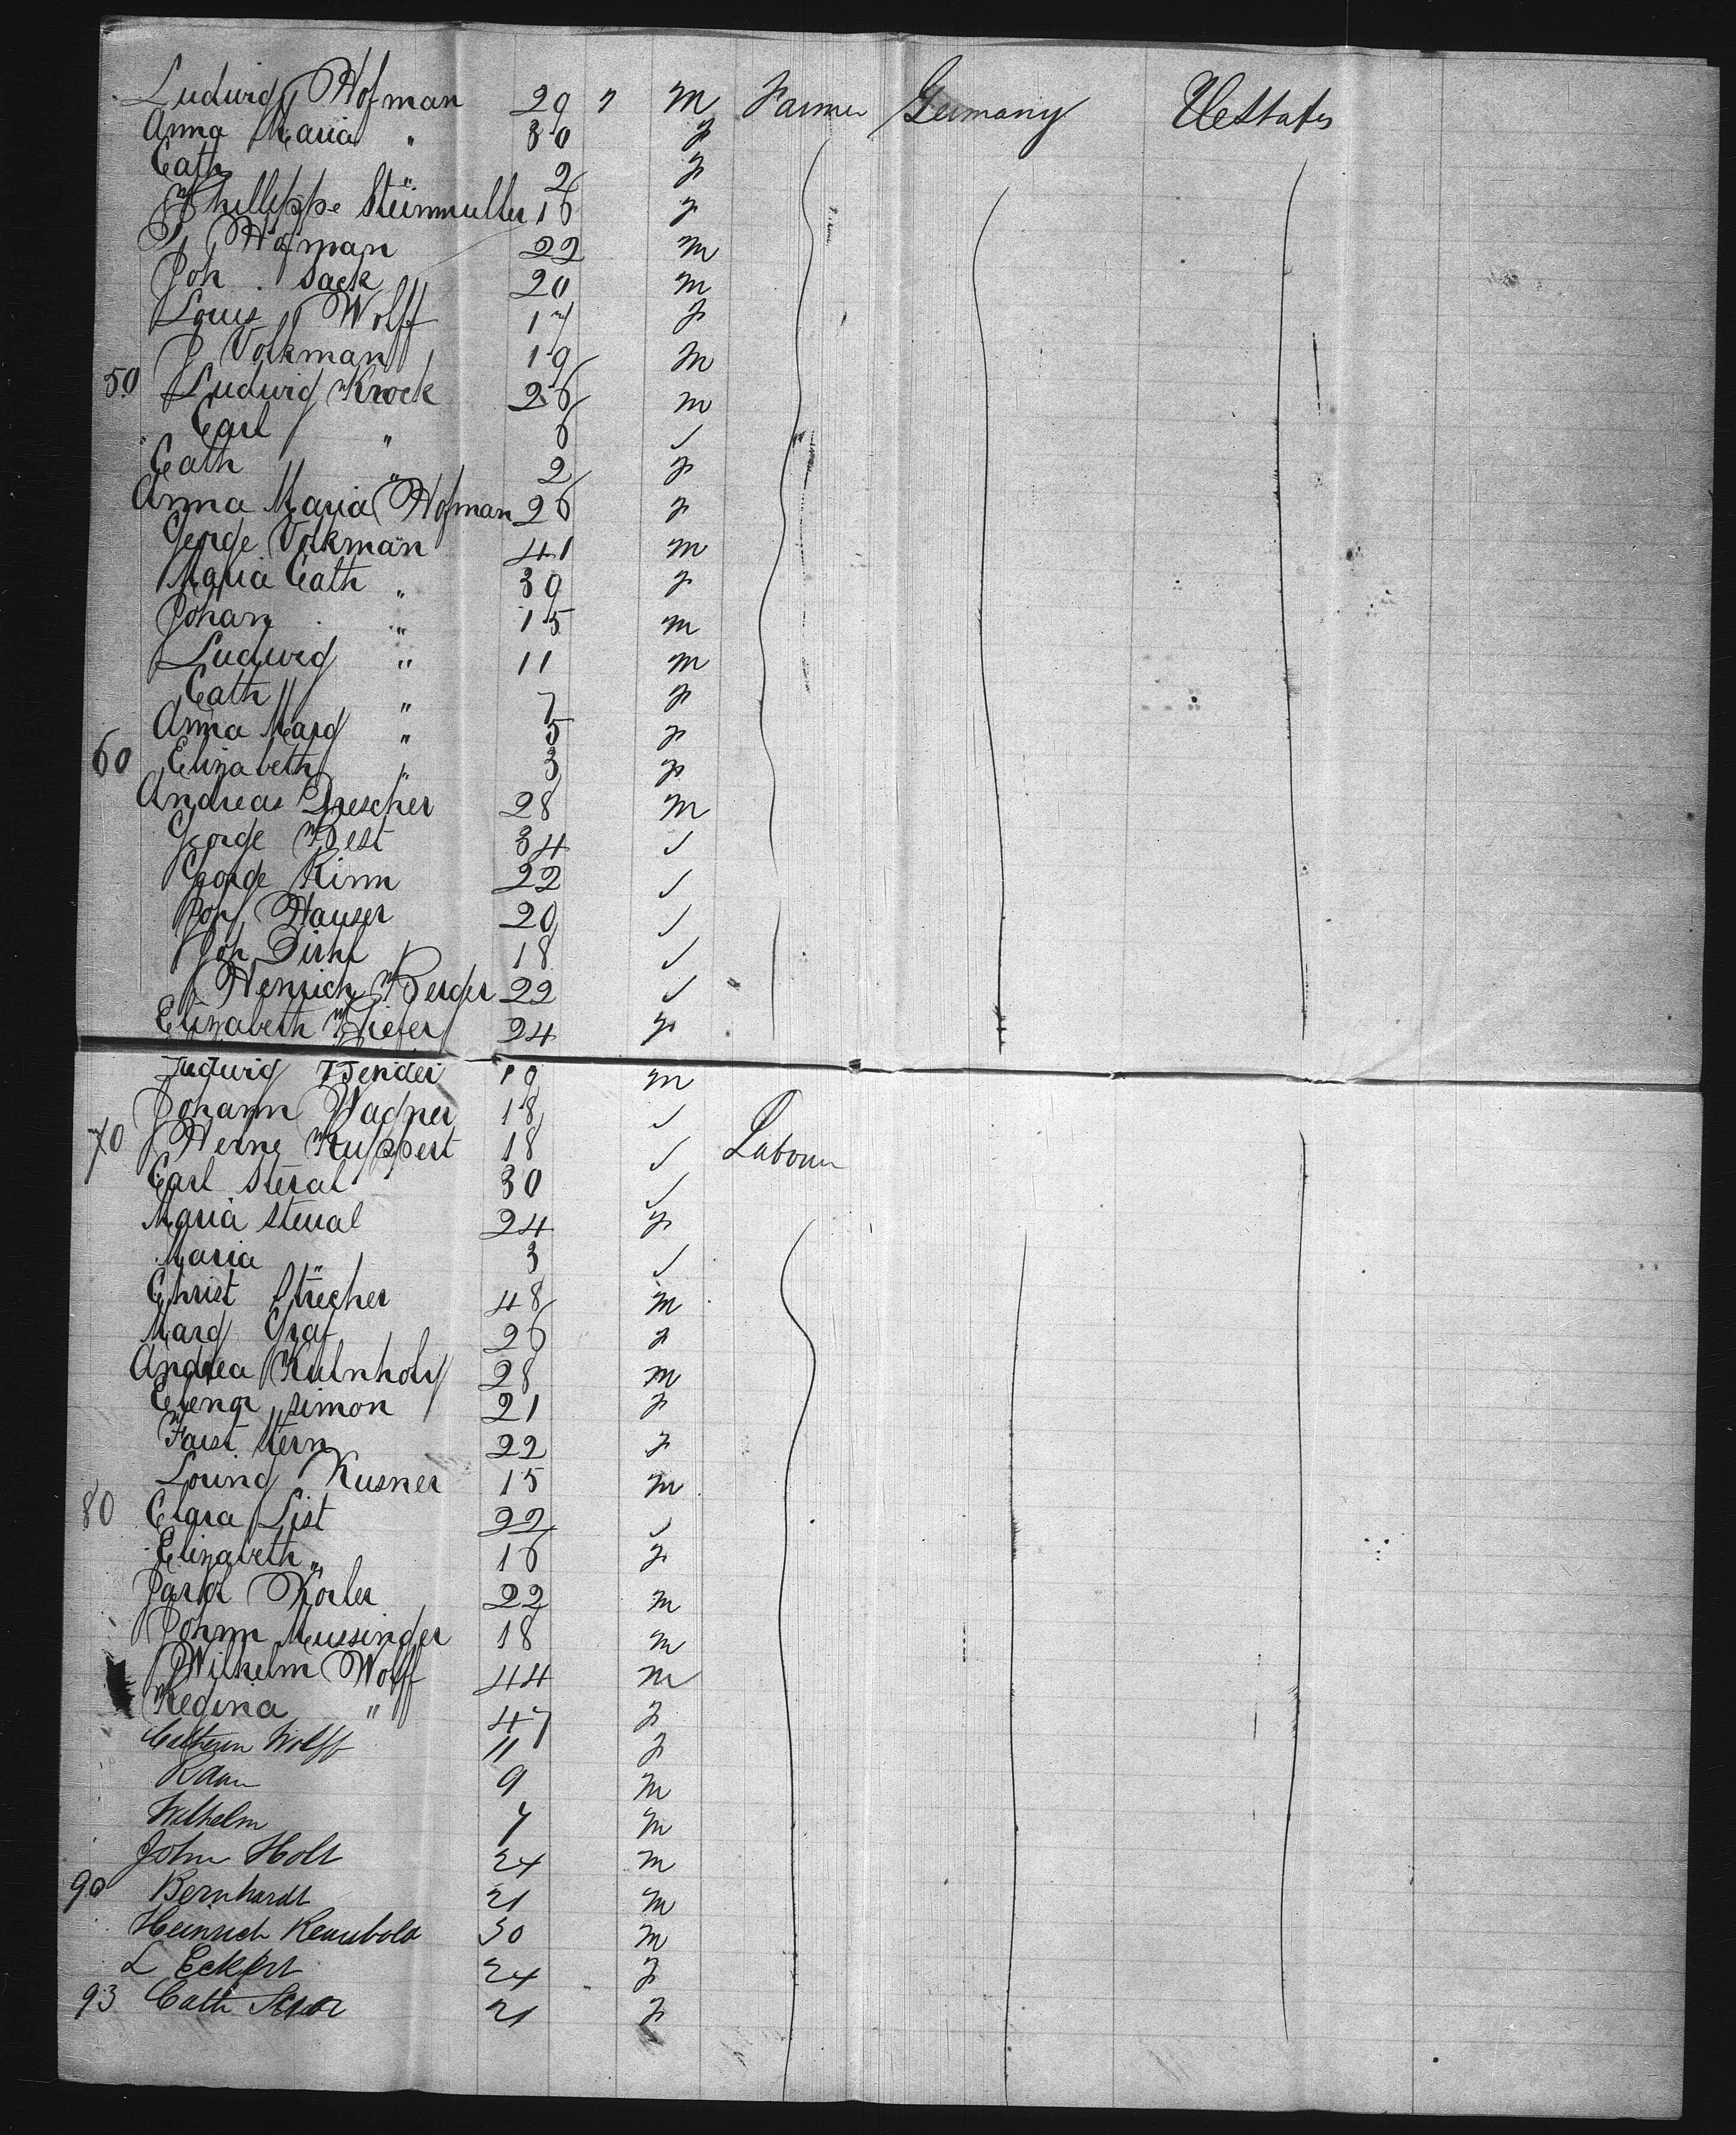 Ludwig Hofman 29 " M Farmer Germany UeStates
Anna Maria " 30 F
Cath " 2 F
Phillippe Steinmuller 16 F
J Hofman 22 M
Joh. Sack 20 M
Louis Wolff 17 F
J Volkman 19 M
50 Ludwig Krock 26 M
Carl " 6 ✓
Cath " 2 F
Anna Maria Hofman 26 F
George Volkman 41 M
Maria Cath " 39 F
Johan " 15 M
Ludwig " 11 M
Cath " 7 F
Anna Marg " 5 F
60 Elizabeth " 3 F
Andreas Drescher 28 M
George Best 34 ✓
George Rinn 22 ✓
Joh Hauser 20 ✓
Joh Dirhl 18 ✓
Henrich Berger 22 ✓
Elizabeth Giefer 24 F
Ludwig Bender 19 M
Johann Wagner 18 ✓
70 Herng Ruppert 18 ✓ Labour
Carl Steral 30 ✓
Maria Steual 24 F
Maria " 3 ✓
Christ Strecher 48 M
Marg Graf 26 F
Andrea Kulnholz 28 M
Elenor Simon 21 F
Faist Stern 22 F
Louing Kusner 15 M
80 Clara List 22 ✓
Elizabeth " 16 F
Jakob Korler 22 M
Johnn Mussinger 18 M
Wilhelm Wolff 44 M
Regina " 47 F
Catheren Wolff 11 F
Adam 9 M
Wilhelm 7 M
John Holt 24 M
90 Bernhardt 21 M
Heinrich Reinbold 30 M
L Eckert 24 F
93 Cath 21 F